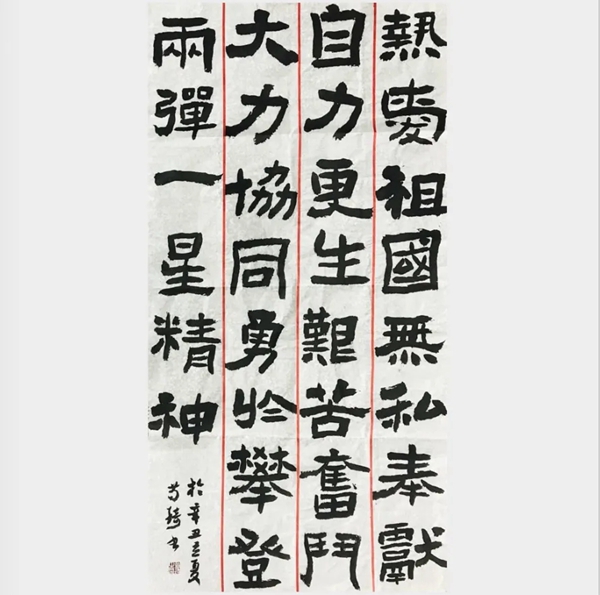 熱愛祖國無私奉獻
自力更生艱苦奮鬥
大力協同勇於攀登
兩彈一星精神
於辛丑立夏